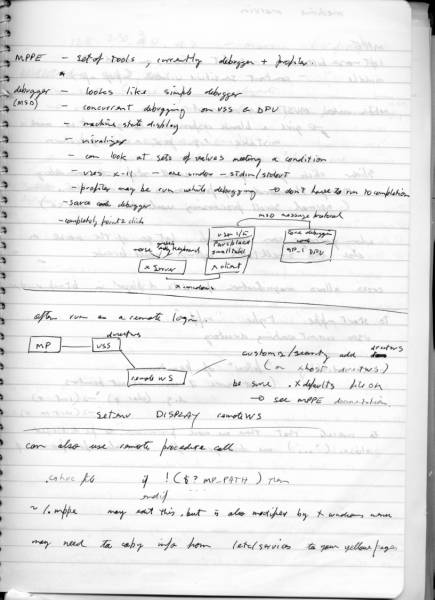 MPPE - set of tools, currently debugger + profiler
debugger - looks like simple debugger
(MSD) - concurrent debugging on VSS & DPU
- machine state display
- visualizer
- can look at sets of values meeting a condition
- uses X-11 - one window - stdin/stdout
- profiler may be run while debugging → don't have to run to completion
- source code debugger
- completely point & click
MSD message protocol
user i/f
Parcplace
smalltalk
X client
core debugging
X server
X windows
often run on a remote login
directvs
MP VSS
remote WS
customize/security add
(or xhost directvs)
be sure .Xdefaults file on
→ see MPPE documentation
setenv DISPLAY remoteWS
can also use remote procedure call
.cshrc file if !($?MP_PATH) then
endif
~/.mppe may edit this, but is also modified by X windows
may need to copy info from /etc/services to your yellow pages